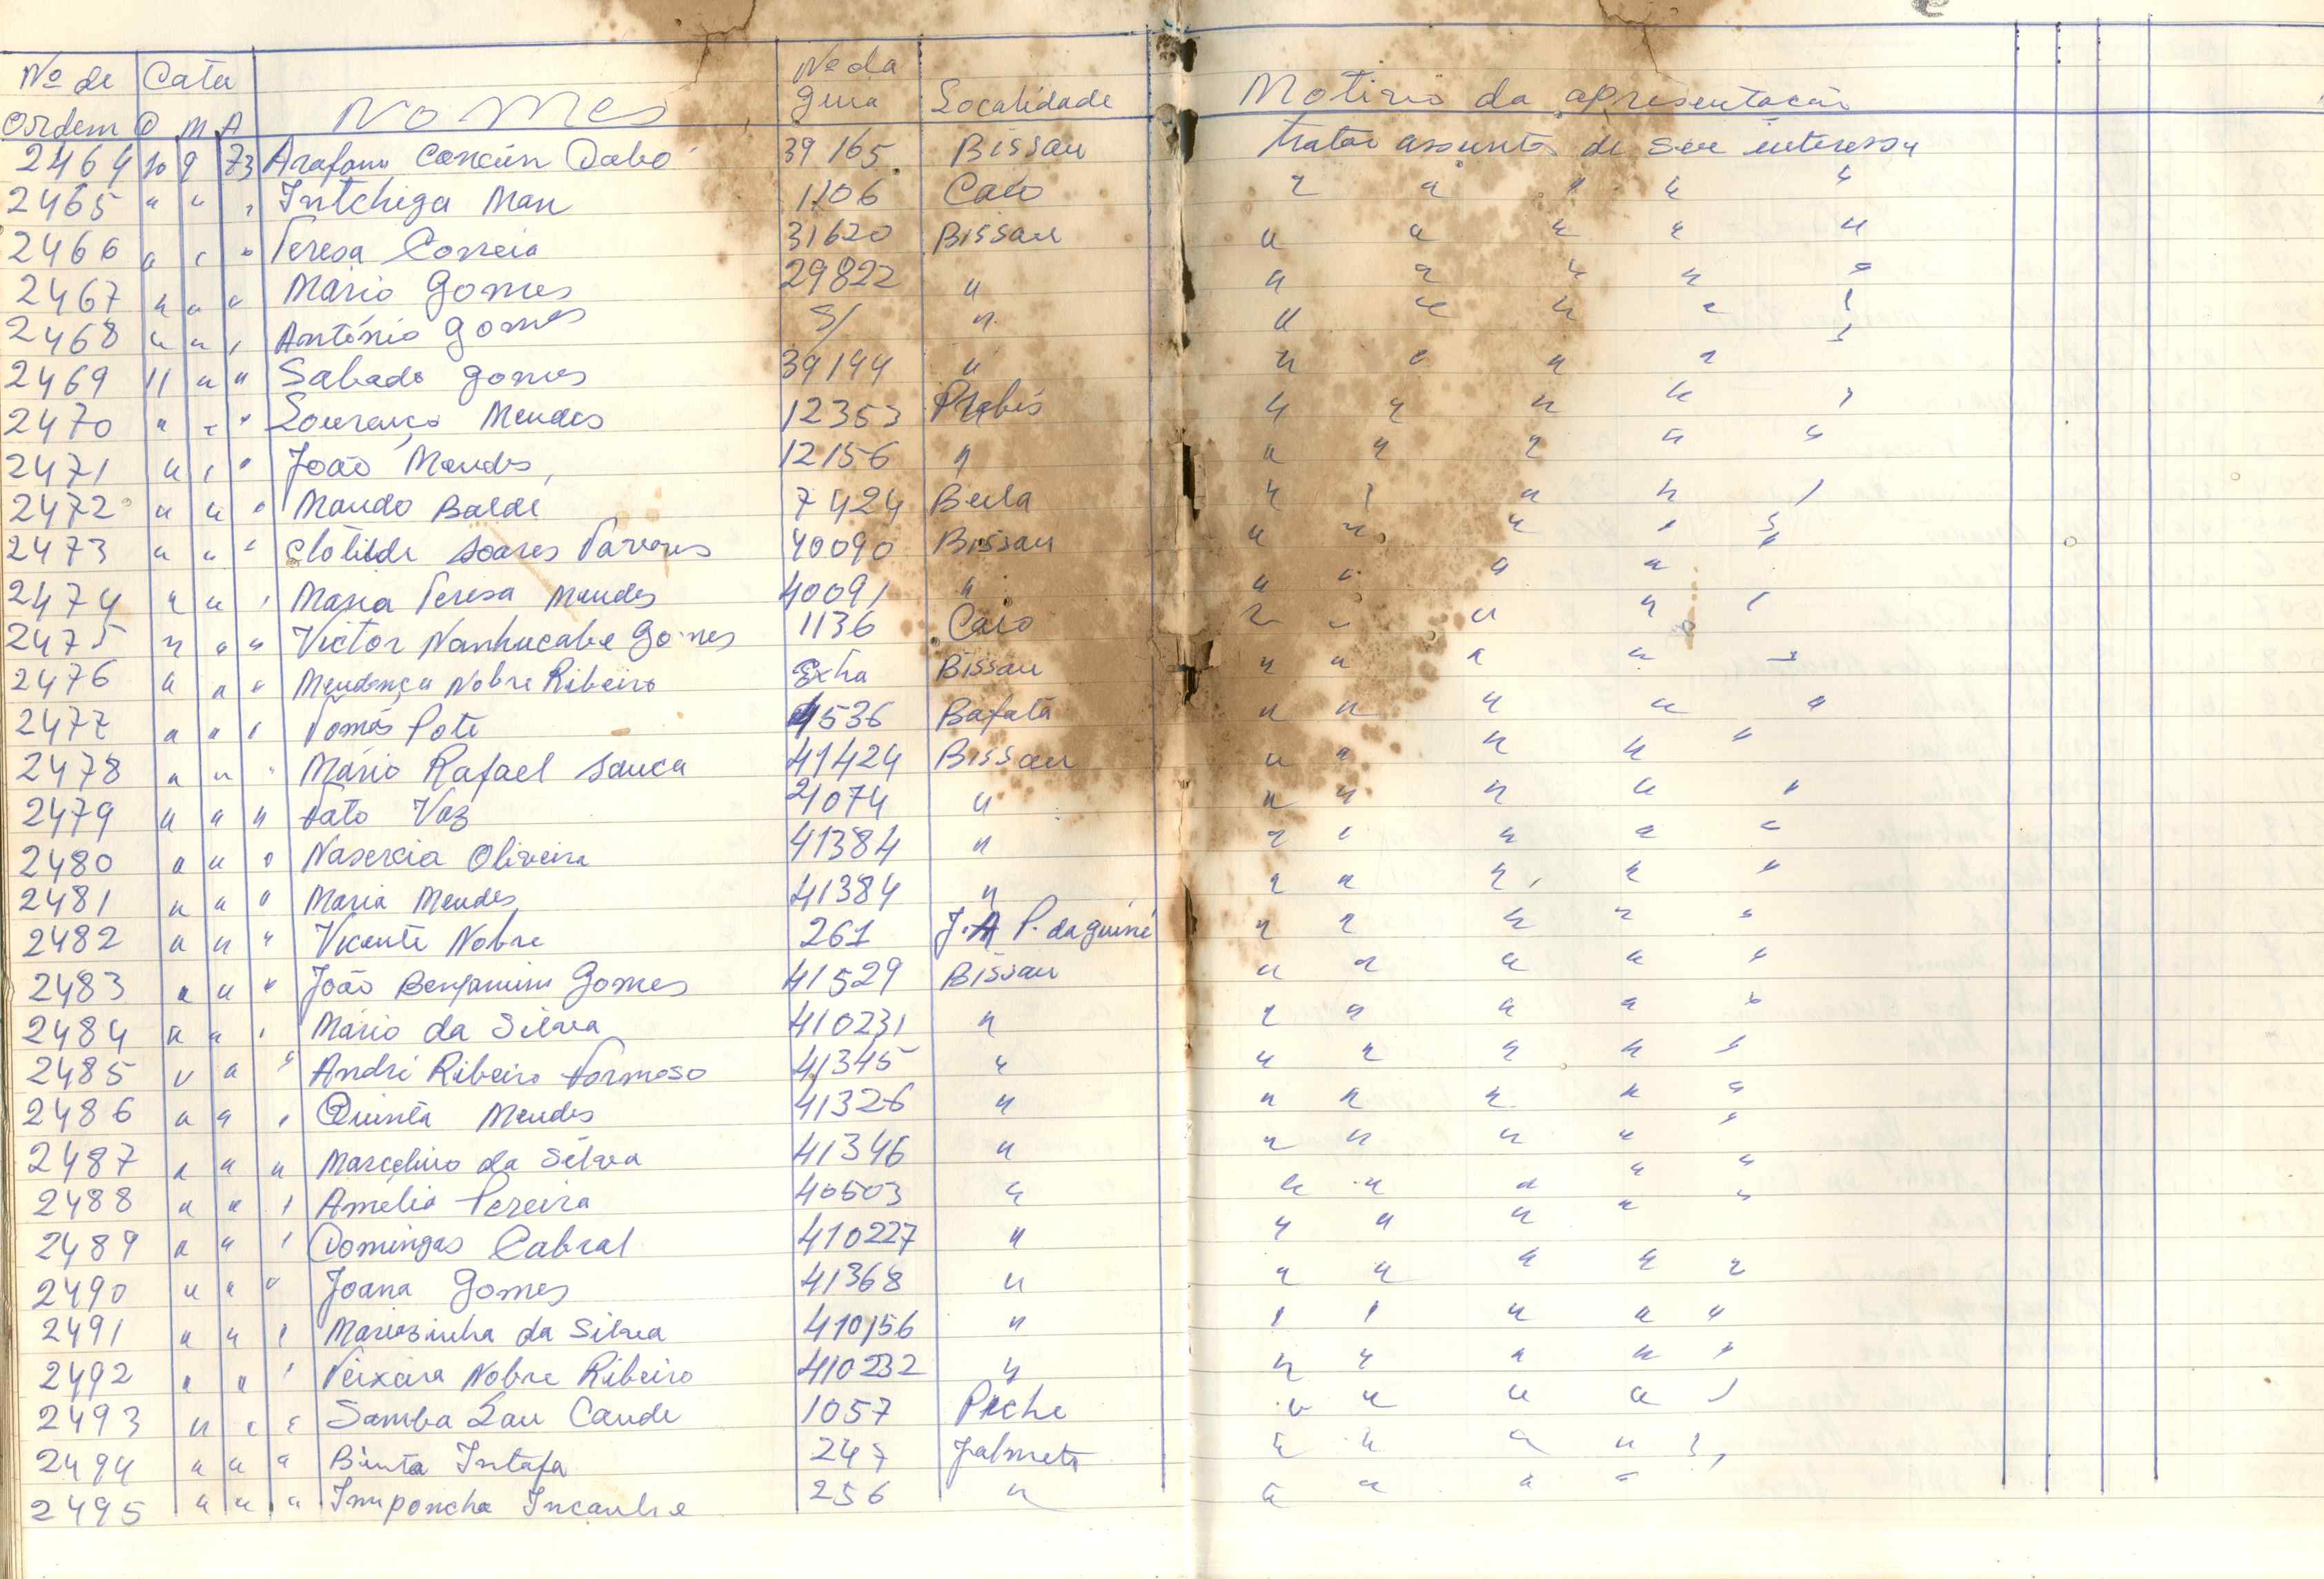 Nº de Data Nomes Nº da Localidade Motivo da apresentação
Ordem D M A guia
2464 10 9 73 Arafam Dabó 39165 Bissau tratar assunto de seu interesse
2465 " " " Intchiga Man 1106 Caió " " " " "
2466 " " " Teresa Correia 31620 Bissau " " " " "
2467 " " " Mário Gomes 29822 " " " " " "
2468 " " " António Gomes S/ " " " " " "
2469 11 " " Sabado Gomes 39144 " " " " " "
2470 " " " Lourenço Mendes 12353 Prabis " " " " "
2471 " " " João Mendes 12156 " " " " " "
2472 " " " Mando Baldé 7424 Beila " " " " "
2473 " " " Clotilde Soares Tavares 40090 Bissau " " " " "
2474 " " " Maria Teresa Mendes 40091 " " " " "
2475 " " " Victor Nanhucabe Gomes 1136 Caió " " " " "
2476 " " " Mendonça Nobre Ribeiro Bissau " " " " "
2477 " " " Tomás Poté 4536 Bafatá " " " " "
2478 " " " Mário Rafael Sanca 41424 Bissau " " " " "
2479 " " " Fato Vaz 21074 " " " " " "
2480 " " " Nasercia Oliveira 41384 " " " " " "
2481 " " " Maria Mendes 41384 " " " " " "
2482 " " " Vicente Nobre 261 J.A P. da guiné " " " " "
2483 " " " João Benjamim Gomes 41529 Bissau " " " " "
2484 " " " Mário da Silva 410231 " " " " " "
2485 " " " André Ribeiro Formoso 41345 " " " " " "
2486 " " " Quinta Mendes 41326 " " " " " "
2487 " " " Marcelino da Silva 41346 " " " " " "
2488 " " " Amelia Pereira 40503 " " " " " "
2489 " " " Domingas Cabral 410227 " " " " " "
2490 " " " Joana Gomes 41368 " " " " " "
2491 " " " Mariazinha da Silva 410156 " " " " " "
2492 " " " Teixeira Nobre Ribeiro 410232 " " " " " "
2493 " " " Samba Lau Cande 1057 Piche " " " " "
2494 " " " Binta Intafa 247 Jalmete " " " " "
2495 " " " Imponcha Incanhe 256 " " " " "